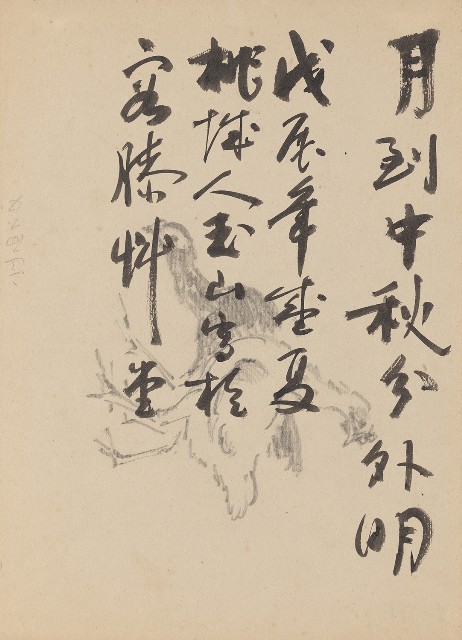 月到中秋分外明
戊辰年盛夏
桃城人玉山寫於
容膝艸堂